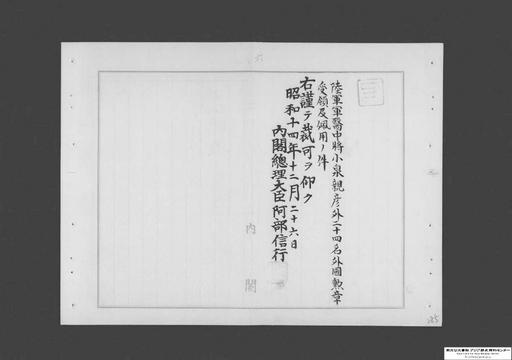 陸軍軍醫中將小泉親彦外二十四名外國勲章
受領及佩用ノ件
右謹テ裁可ヲ仰ク
昭和十四年十二月二十六日
内閣總理大臣阿部信行
内閣